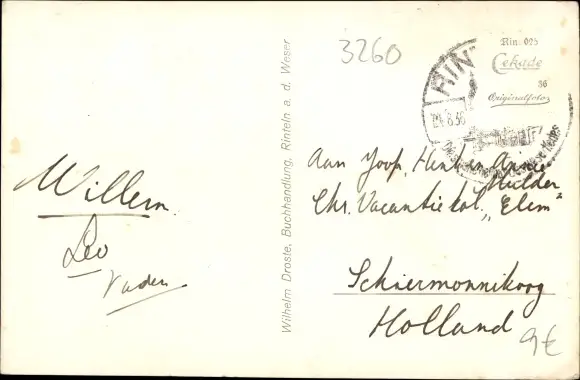 3260
Rin. 095
Cekade
36
Originalfoto
RIN
8.36
Willem.
Leo
Vader
Wilhelm Droste, Buchhandlung, Rinteln a. d. Weser
Aan Joop, Henk en Annie
Mulder
Chr. Vacantiekol. „Elim"
Schiermonnikoog
Holland
9€